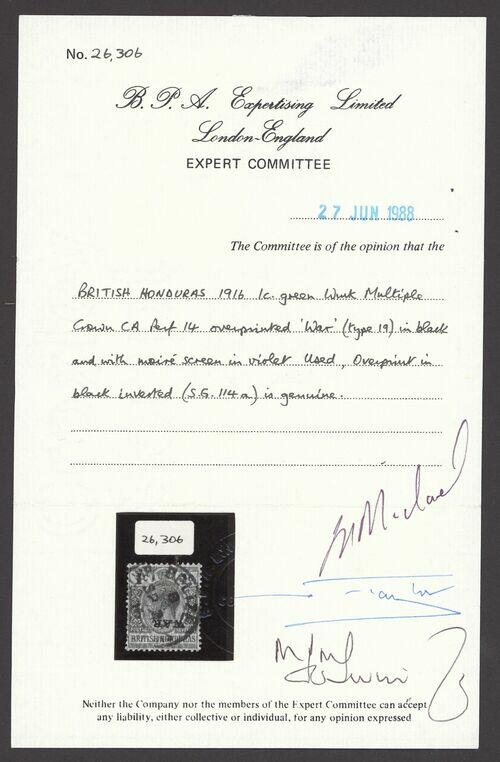 No. 26,306
B. P. A. Expertising Limited
London-England
EXPERT COMMITTEE
27 JUN 1988
The Committee is of the opinion that the
BRITISH HONDURAS 1916 1c. green Wmk Multiple
Crown CA Perf 14 overprinted 'War' (type 19) in black
and with moiré screen in violet Used, Overprint in
black inverted (S.G. 114a) is genuine.
26,306
WAR
BRITISH HONDURAS
Neither the Company nor the members of the Expert Committee can accept
any liability, either collective or individual, for any opinion expressed